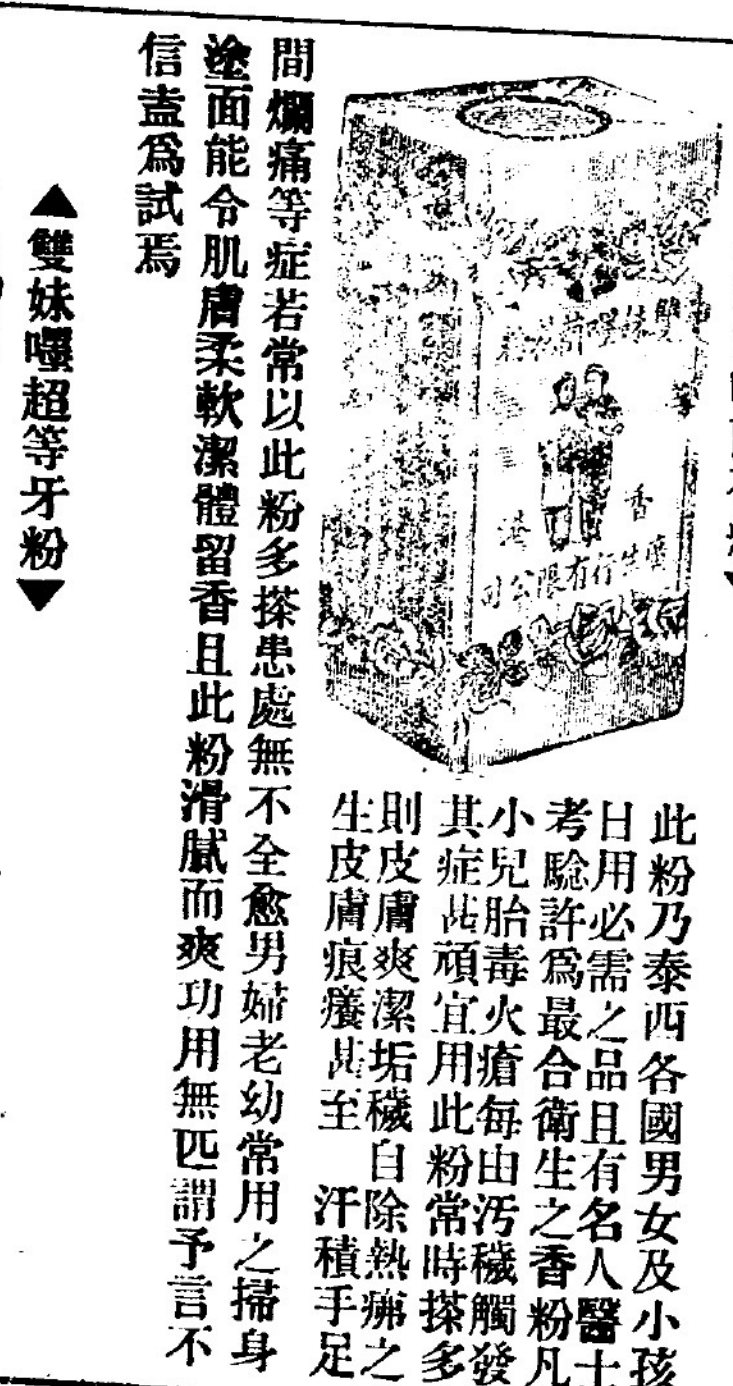 雙妹嚜
等
香港
廣生行有限公司
此粉乃泰西各國男女及小孩
日用必需之品且有名人醫士
考驗許爲最合衛生之香粉凡
小兒胎毒火瘡每由汚穢觸發
其症甚頑宜用此粉常時搽多
則皮膚爽潔垢穢自除熱痱之
生皮膚痕癢甚至 汗積手足
間爛痛等症若常以此粉多搽患處無不全愈男婦老幼常用之掃身
塗面能令肌膚柔軟潔體留香且此粉滑膩而爽功用無匹謂予言不
信盍爲試焉
▲雙妹嚜超等牙粉▼